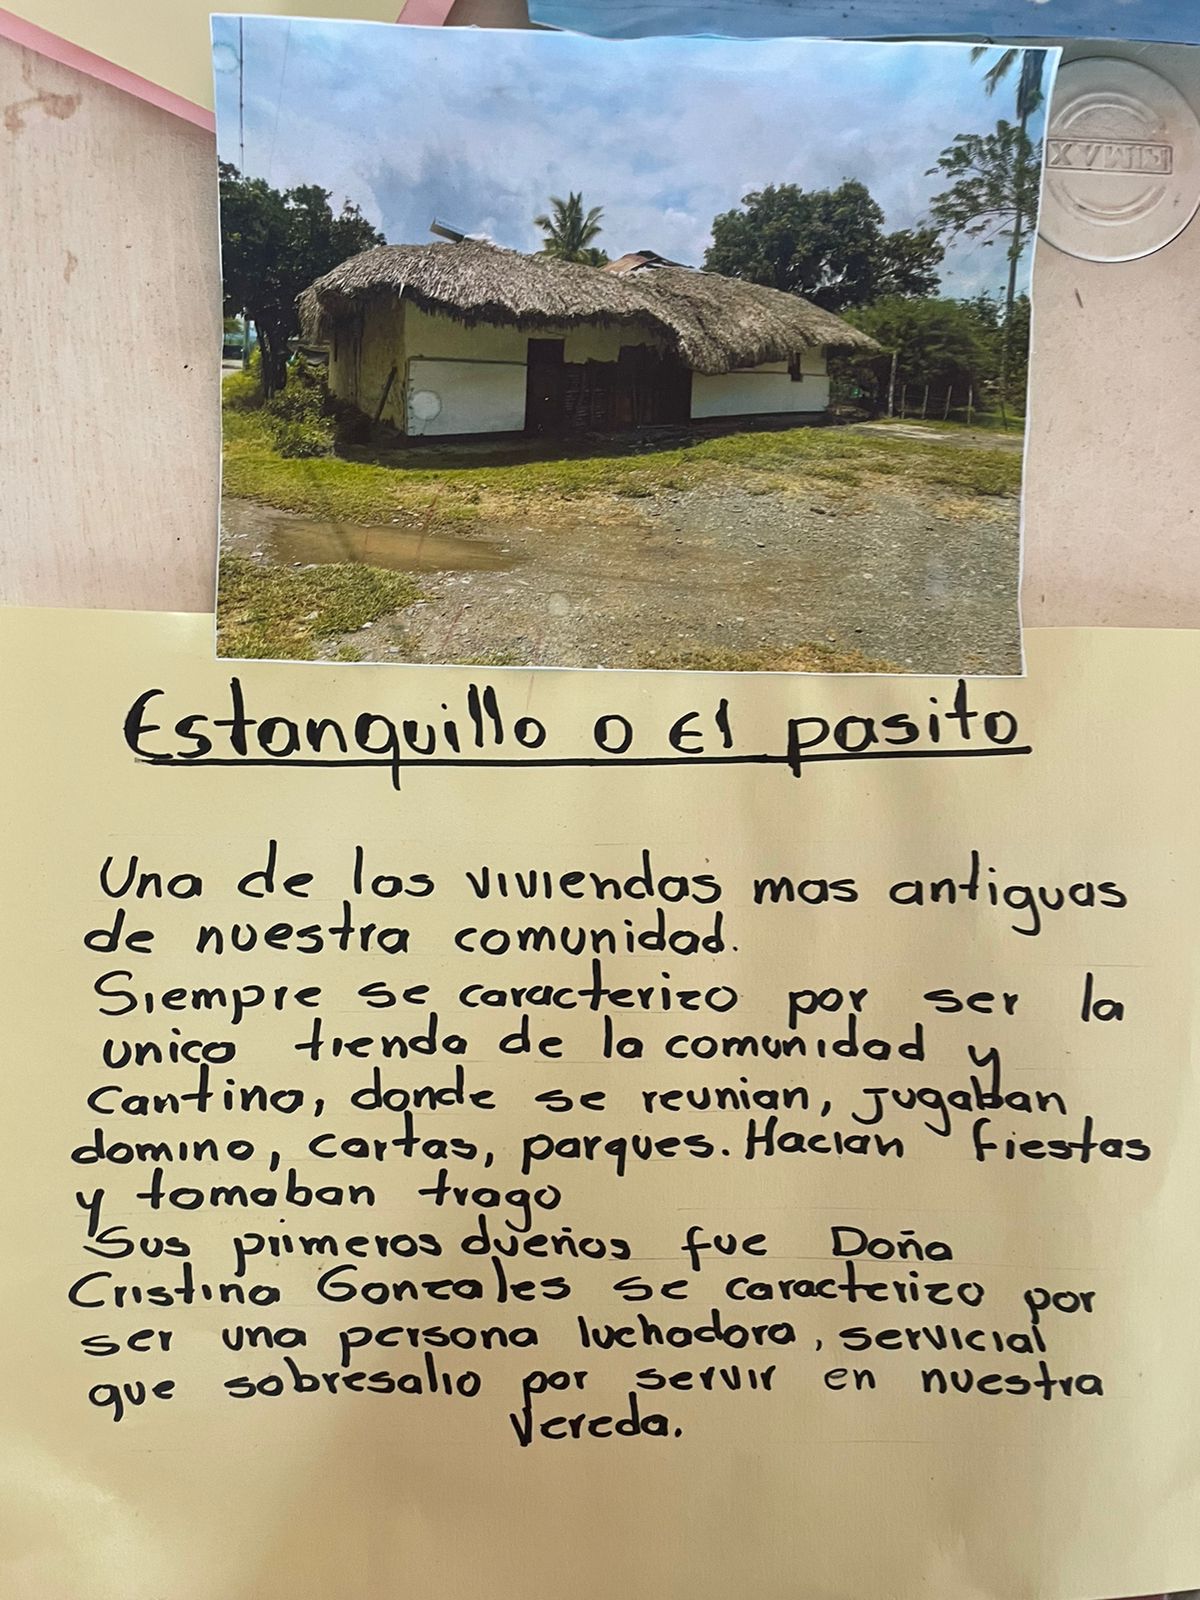 PIMAX
Estanquillo o El pasito
Una de las viviendas mas antiguas
de nuestra comunidad.
Siempre se caracterizo por ser la
unica tienda de la comunidad y
Cantina, donde se reunian, jugaban
domino, cartas, parques. Hacian fiestas
y tomaban trago
Sus primeros dueños fue Doña
Cristina Gonzales se caracterizo por
ser una persona luchadora, servicial
que sobresalio por servir en nuestra
Vereda.